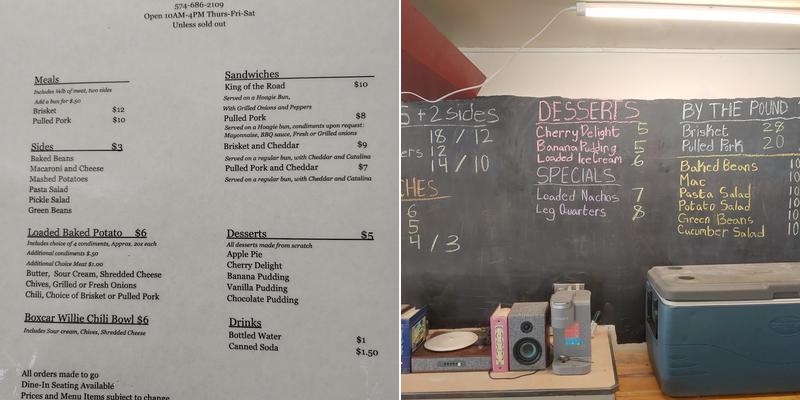 574-686-2109
Open 10AM-4PM Thurs-Fri-Sat
Unless sold out
Meals
Includes ¼lb of meat, two sides
Add a bun for $.50
Brisket $12
Pulled Pork $10
Sides $3
Baked Beans
Macaroni and Cheese
Mashed Potatoes
Pasta Salad
Pickle Salad
Green Beans
Loaded Baked Potato $6
Includes choice of 4 condiments, Approx. 2oz each
Additional condiments $.50
Additional Choice Meat $1.00
Butter, Sour Cream, Shredded Cheese
Chives, Grilled or Fresh Onions
Chili, Choice of Brisket or Pulled Pork
Boxcar Willie Chili Bowl $6
Includes Sour cream, Chives, Shredded Cheese
All orders made to go
Dine-In Seating Available
Prices and Menu Items subject to change
Sandwiches
King of the Road $10
Served on a Hoagie Bun,
With Grilled Onions and Peppers
Pulled Pork $8
Served on a Hoagie bun, condiments upon request:
Mayonnaise, BBQ sauce, Fresh or Grilled onions
Brisket and Cheddar $9
Served on a regular bun, with Cheddar and Catalina
Pulled Pork and Cheddar $7
Served on a regular bun, with Cheddar and Catalina
Desserts $5
All desserts made from scratch
Apple Pie
Cherry Delight
Banana Pudding
Vanilla Pudding
Chocolate Pudding
Drinks
Bottled Water $1
Canned Soda $1.50
+ 2 sides
18 / 12
ers 12
14 / 10
CHES
6
5
4 / 3
DESSERTS
Cherry Delight 5
Banana Pudding 5
Loaded Ice Cream 6
SPECIALS
Loaded Nachos 7
Leg Quarters 8
BY THE POUND
Brisket 28
Pulled Pork 20
Baked Beans 10
Mac
Pasta Salad 10
Potato Salad 10
Green Beans 10
Cucumber Salad 10